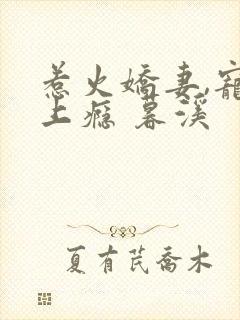 惹火嬌妻,寵
上癮 暮溪
夏有芪喬木